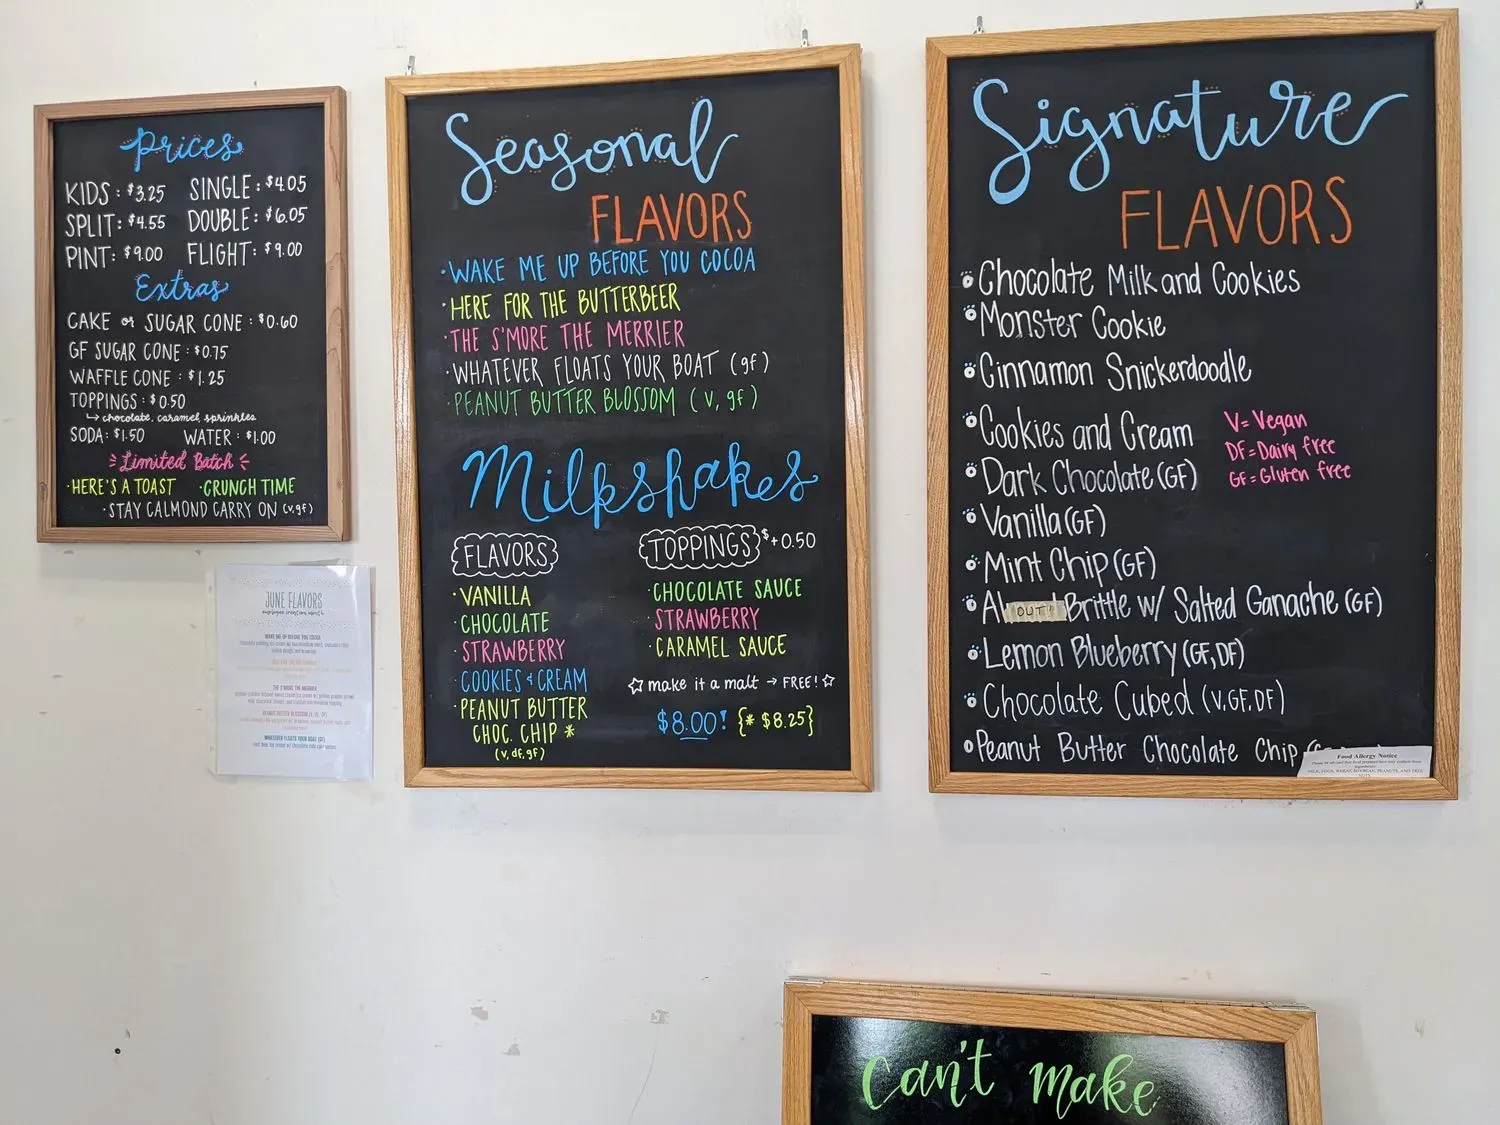 Prices
KIDS: $3.25 SINGLE: $4.05
SPLIT: $4.55 DOUBLE: $6.05
PINT: $9.00 FLIGHT: $9.00
Extras
CAKE or SUGAR CONE: $0.60
GF SUGAR CONE: $0.75
WAFFLE CONE: $1.25
TOPPINGS: $0.50
↳ chocolate, caramel, sprinkles
SODA: $1.50 WATER: $1.00
Limited Batch
·HERE'S A TOAST ·CRUNCH TIME
·STAY CALMOND CARRY ON (v,gf)
JUNE FLAVORS
WAKE ME UP BEFORE YOU COCOA
THE S'MORE THE MERRIER
PEANUT BUTTER BLOSSOM
WHATEVER FLOATS YOUR BOAT (GF)
Seasonal
FLAVORS
·WAKE ME UP BEFORE YOU COCOA
·HERE FOR THE BUTTERBEER
·THE S'MORE THE MERRIER
·WHATEVER FLOATS YOUR BOAT (gf)
·PEANUT BUTTER BLOSSOM (v, gf)
Milkshakes
FLAVORS
·VANILLA
·CHOCOLATE
·STRAWBERRY
·COOKIES & CREAM
·PEANUT BUTTER
CHOC. CHIP *
(v, df, gf)
TOPPINGS $+0.50
·CHOCOLATE SAUCE
·STRAWBERRY
·CARAMEL SAUCE
☆ make it a malt → FREE! ☆
$8.00! {* $8.25}
Signature
FLAVORS
Chocolate Milk and Cookies
Monster Cookie
Cinnamon Snickerdoodle
Cookies and Cream
Dark Chocolate (GF)
Vanilla (GF)
Mint Chip (GF)
OUT! Brittle w/ Salted Ganache (GF)
Lemon Blueberry (GF, DF)
Chocolate Cubed (V, GF, DF)
Peanut Butter Chocolate Chip
V= Vegan
DF= Dairy free
GF= Gluten free
Food Allergy Notice
Can't make